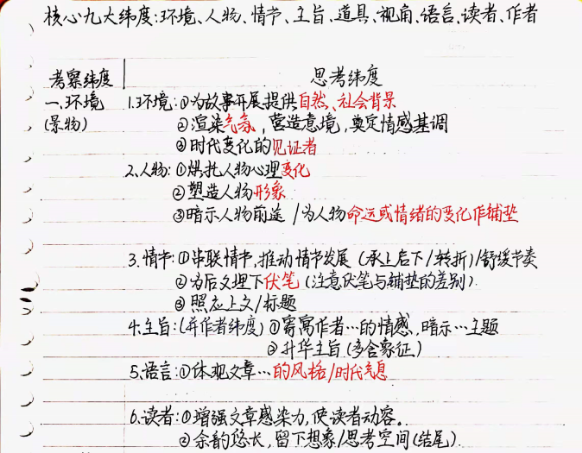 核心九大纬度:环境、人物、情节、主旨、道具、视角、语言、读者、作者
考察纬度 思考纬度
一.环境 1.环境:①为故事开展提供自然、社会背景
(景物) ②渲染气氛,营造意境,奠定情感基调
③时代变化的见证者
2.人物:①烘托人物心理变化
②塑造人物形象
③暗示人物前途/为人物命运或情绪的变化作铺垫
3.情节:①串联情节,推动情节发展(承上启下/转折)/舒缓节奏
②为后文埋下伏笔(注意伏笔与铺垫的差别)
③照应上文/标题
4.主旨:(并作者纬度)①寄寓作者…的情感,暗示…主题
②升华主旨(多含象征)
5.语言:①体现文章…的风格/时代气息
6.读者:①增强文章感染力,使读者动容。
②余韵悠长,留下想象/思考空间(结尾)